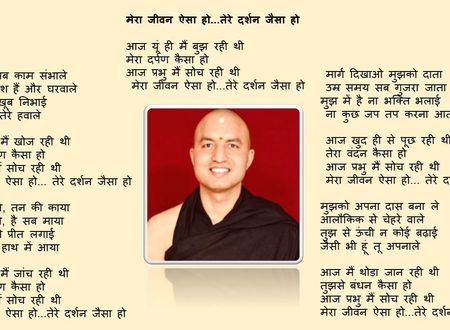 मेरा जीवन ऐसा हो...तेरे दर्शन जैसा हो
आज यूं ही मैं बुझ रही थी
मेरा दर्पण कैसा हो
आज प्रभु मैं सोच रही थी
मेरा जीवन ऐसा हो...तेरे दर्शन जैसा हो
काम संभाले
हैं और घरवाले
खूब निभाई
तेरे हवाले
मैं खोज रही थी
कैसा हो
सोच रही थी
ऐसा हो... तेरे दर्शन जैसा हो
तन की काया
है सब माया
प्रीत लगाई
हाथ में आया
मैं जांच रही थी
कैसा हो
सोच रही थी
ऐसा हो...तेरे दर्शन जैसा हो
मार्ग दिखाओ मुझको दाता
उम समय सब गुजरा जाता
मुझ में है ना भक्ति भलाई
ना कुछ जप तप करना
आज खुद ही से पूछ रही
तेरा वंदन कैसा हो
आज प्रभु मैं सोच रही थी
मेरा जीवन ऐसा हो...तेरे
मुझको अपना दास बना ले
आलौकिक से चेहरे वाले
तुझ से ऊंची न कोई बढ़ाई
जैसी भी हूं तू अपनाले
आज मैं थोडा जान रही थी
तुझसे बंधन कैसा हो
आज प्रभु मैं सोच रही थी
मेरा जीवन ऐसा हो...तेरे